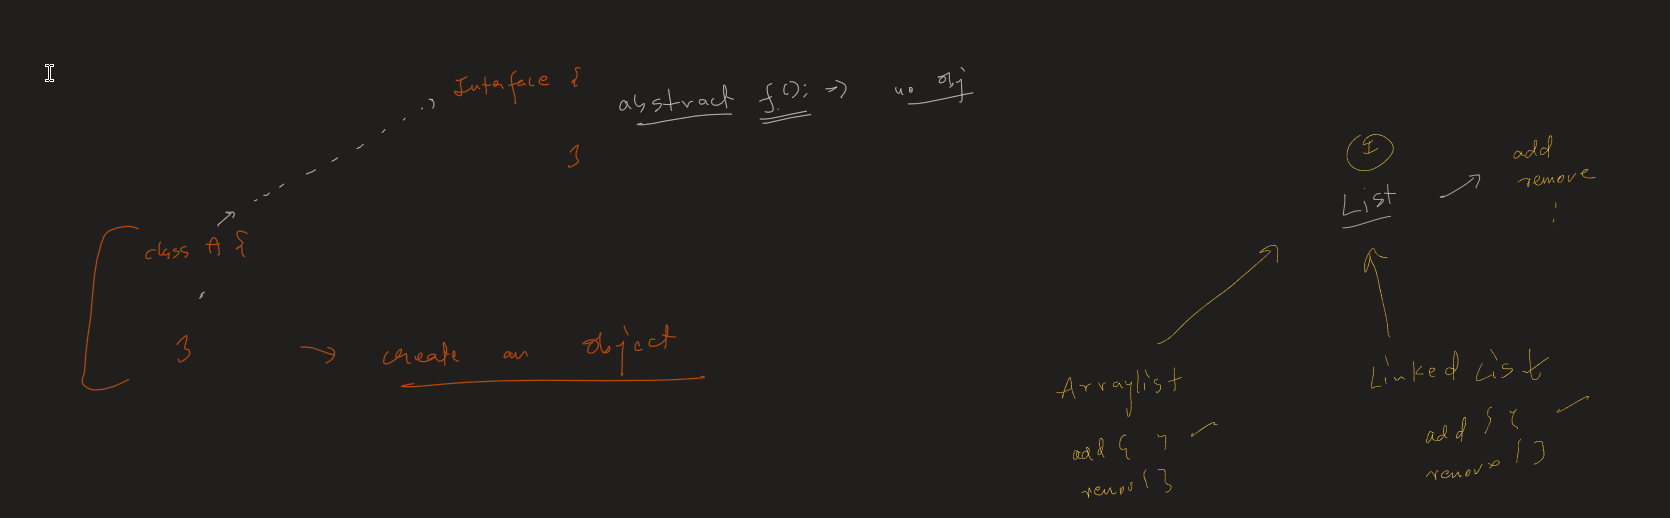 Interface {
abstract f(); => no obj
}
class A {
}
→ create an object
I
List → add
remove
Arraylist
add { }
remov { }
Linked List
add { }
remove { }